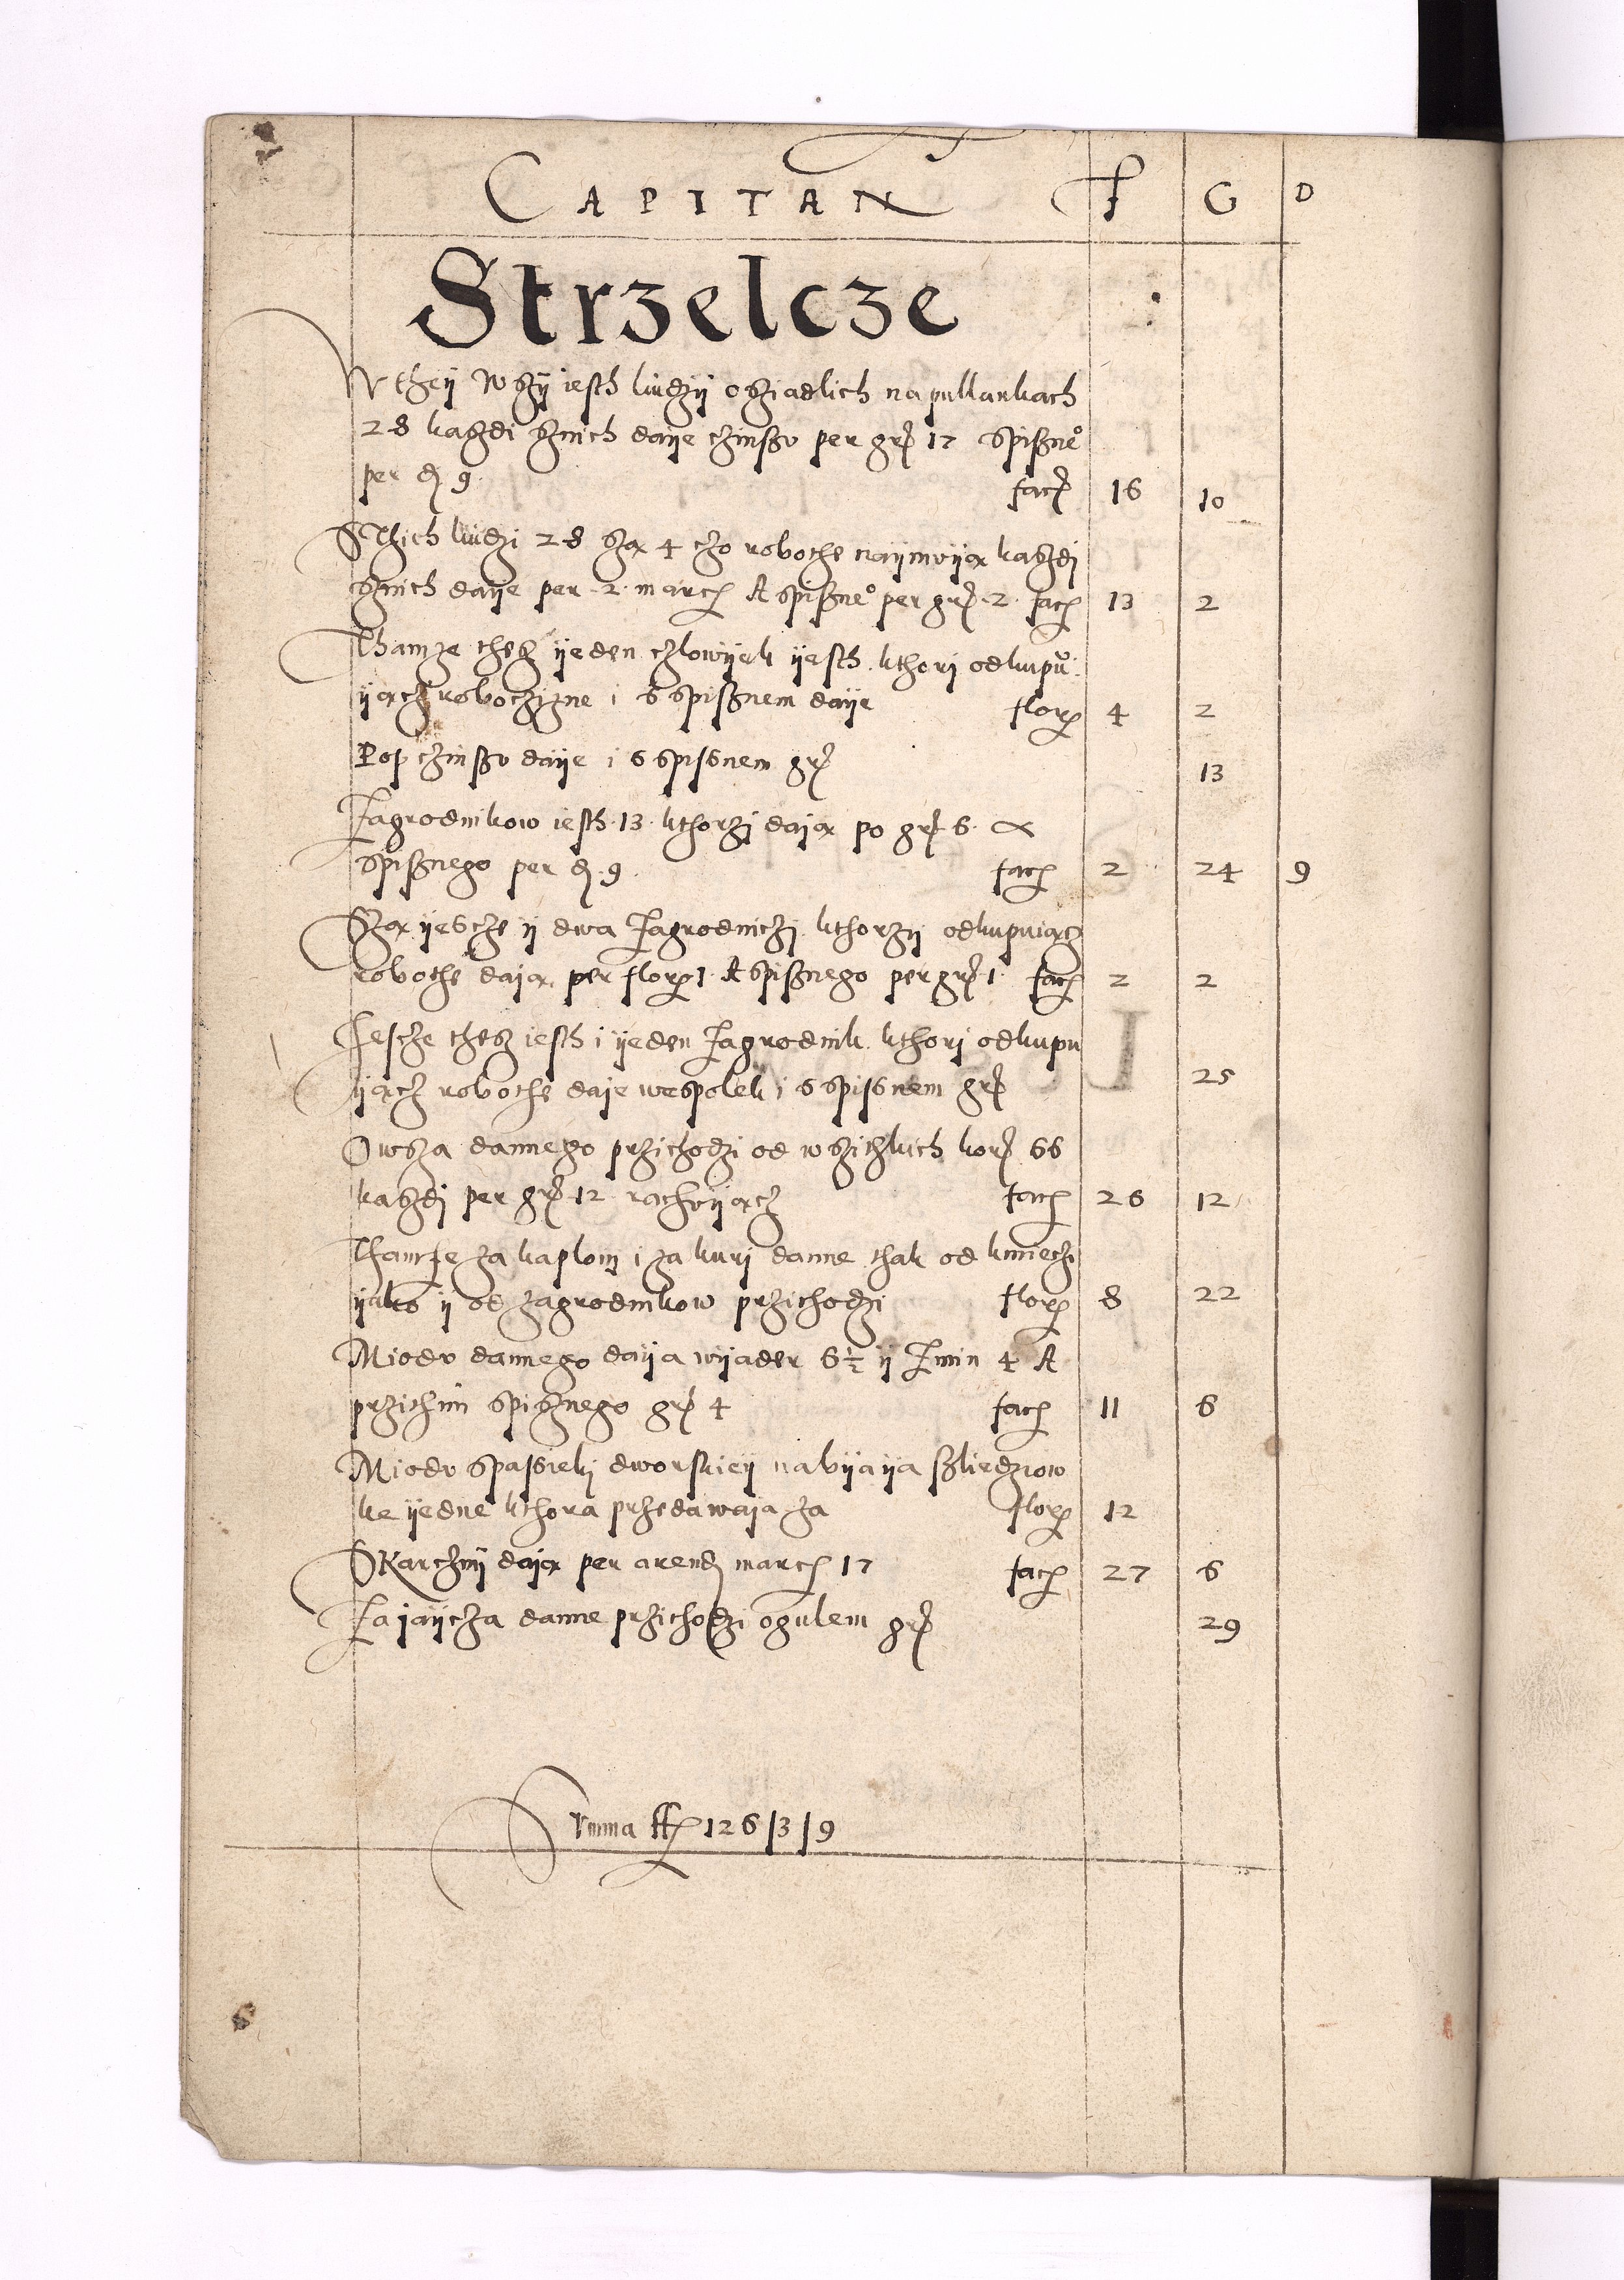 CAPITAN F G D
Strzelcze
W theÿ Wszÿ iesth liudzÿ osziadlich na pullankach
28 kaszdi sznich daÿe czinszv per grź 17 spisznego
per đ 9 facź 16 10
S Thich liudzi 28 szą 4 czo robothe naÿmvÿą kaszdi
sznich daÿe per 2 marcź A spisznego per grź 2 facź 13 2
Thamze thesz ÿeden czlowÿek ÿesth kthori odkupu
ÿącz roboczizne i s spisznem daÿe florź 4 2
Pop czinszv daÿe i s spisnem grź 13
Zagrodnikow iesth 13 kthorzi dają po grź 6 α
spisznego per đ 9 facź 2 24 9
Szą ÿescze ÿ dwa Zagrodniczi kthorzÿ odkupuiącz
robothe dają per florź 1 A spisznego per grź 1 facź 2 2
Jescze thesz iesth i ÿeden Zagrodnik kthori odkupu
ÿącz robothe daje wespolek i s spisnem grź 25
Owsza dannego przichodzi od wszithkich korź 66
kaszdi per grź 12 rachvÿącz facź 26 12
Thamze za kaplonj i za kuri danne thak od kmieczi
ÿako ÿ od zagrodnikow przichodzi florź 8 22
Miodv dannego daÿa wÿader 6½ ÿ Zmin 4 A
przithim spisznego grź 4 facź 11 6
Miodv spasieki dworskieÿ nabÿaÿa szliedziow
ke ÿedne kthora przedawaja za florź 12
S Karczmÿ dają per arendź marcź 17 facź 27 6
Za jaÿcza danne przichodzi ogulem grź 29
Summa ffź 126/3/9